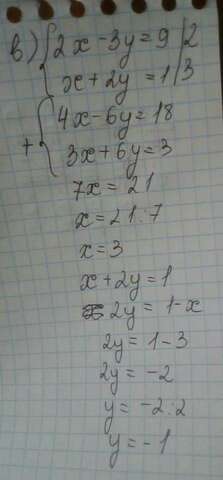 в) { 2x - 3y = 9 | 2
x + 2y = 1 | 3
+ { 4x - 6y = 18
3x + 6y = 3
7x = 21
x = 21 : 7
x = 3
x + 2y = 1
2y = 1 - x
2y = 1 - 3
2y = -2
y = -2 : 2
y = -1